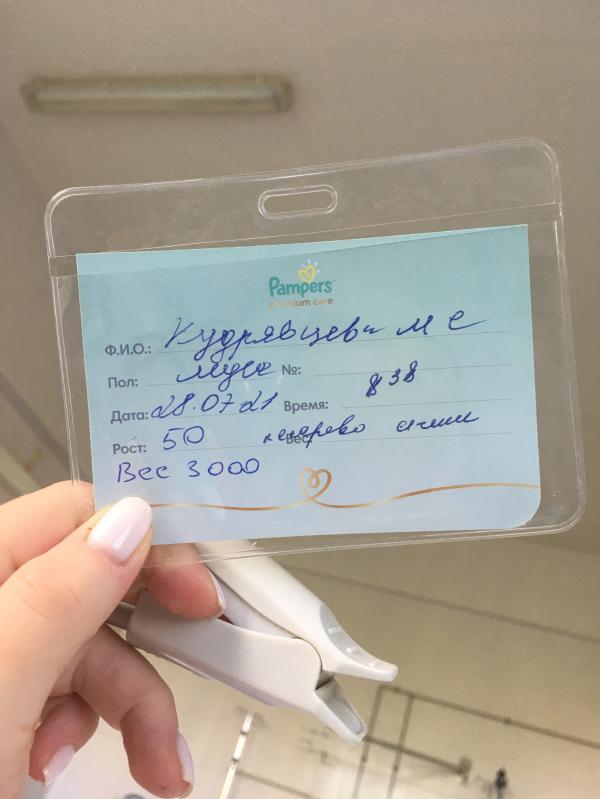 Pampers
premium care
Ф.И.О.: Кудрявцева М С
Пол: муж №:
Дата: 28.07.21 Время: 8 38
Рост: 50 Вес: кесарево
Вес 3000